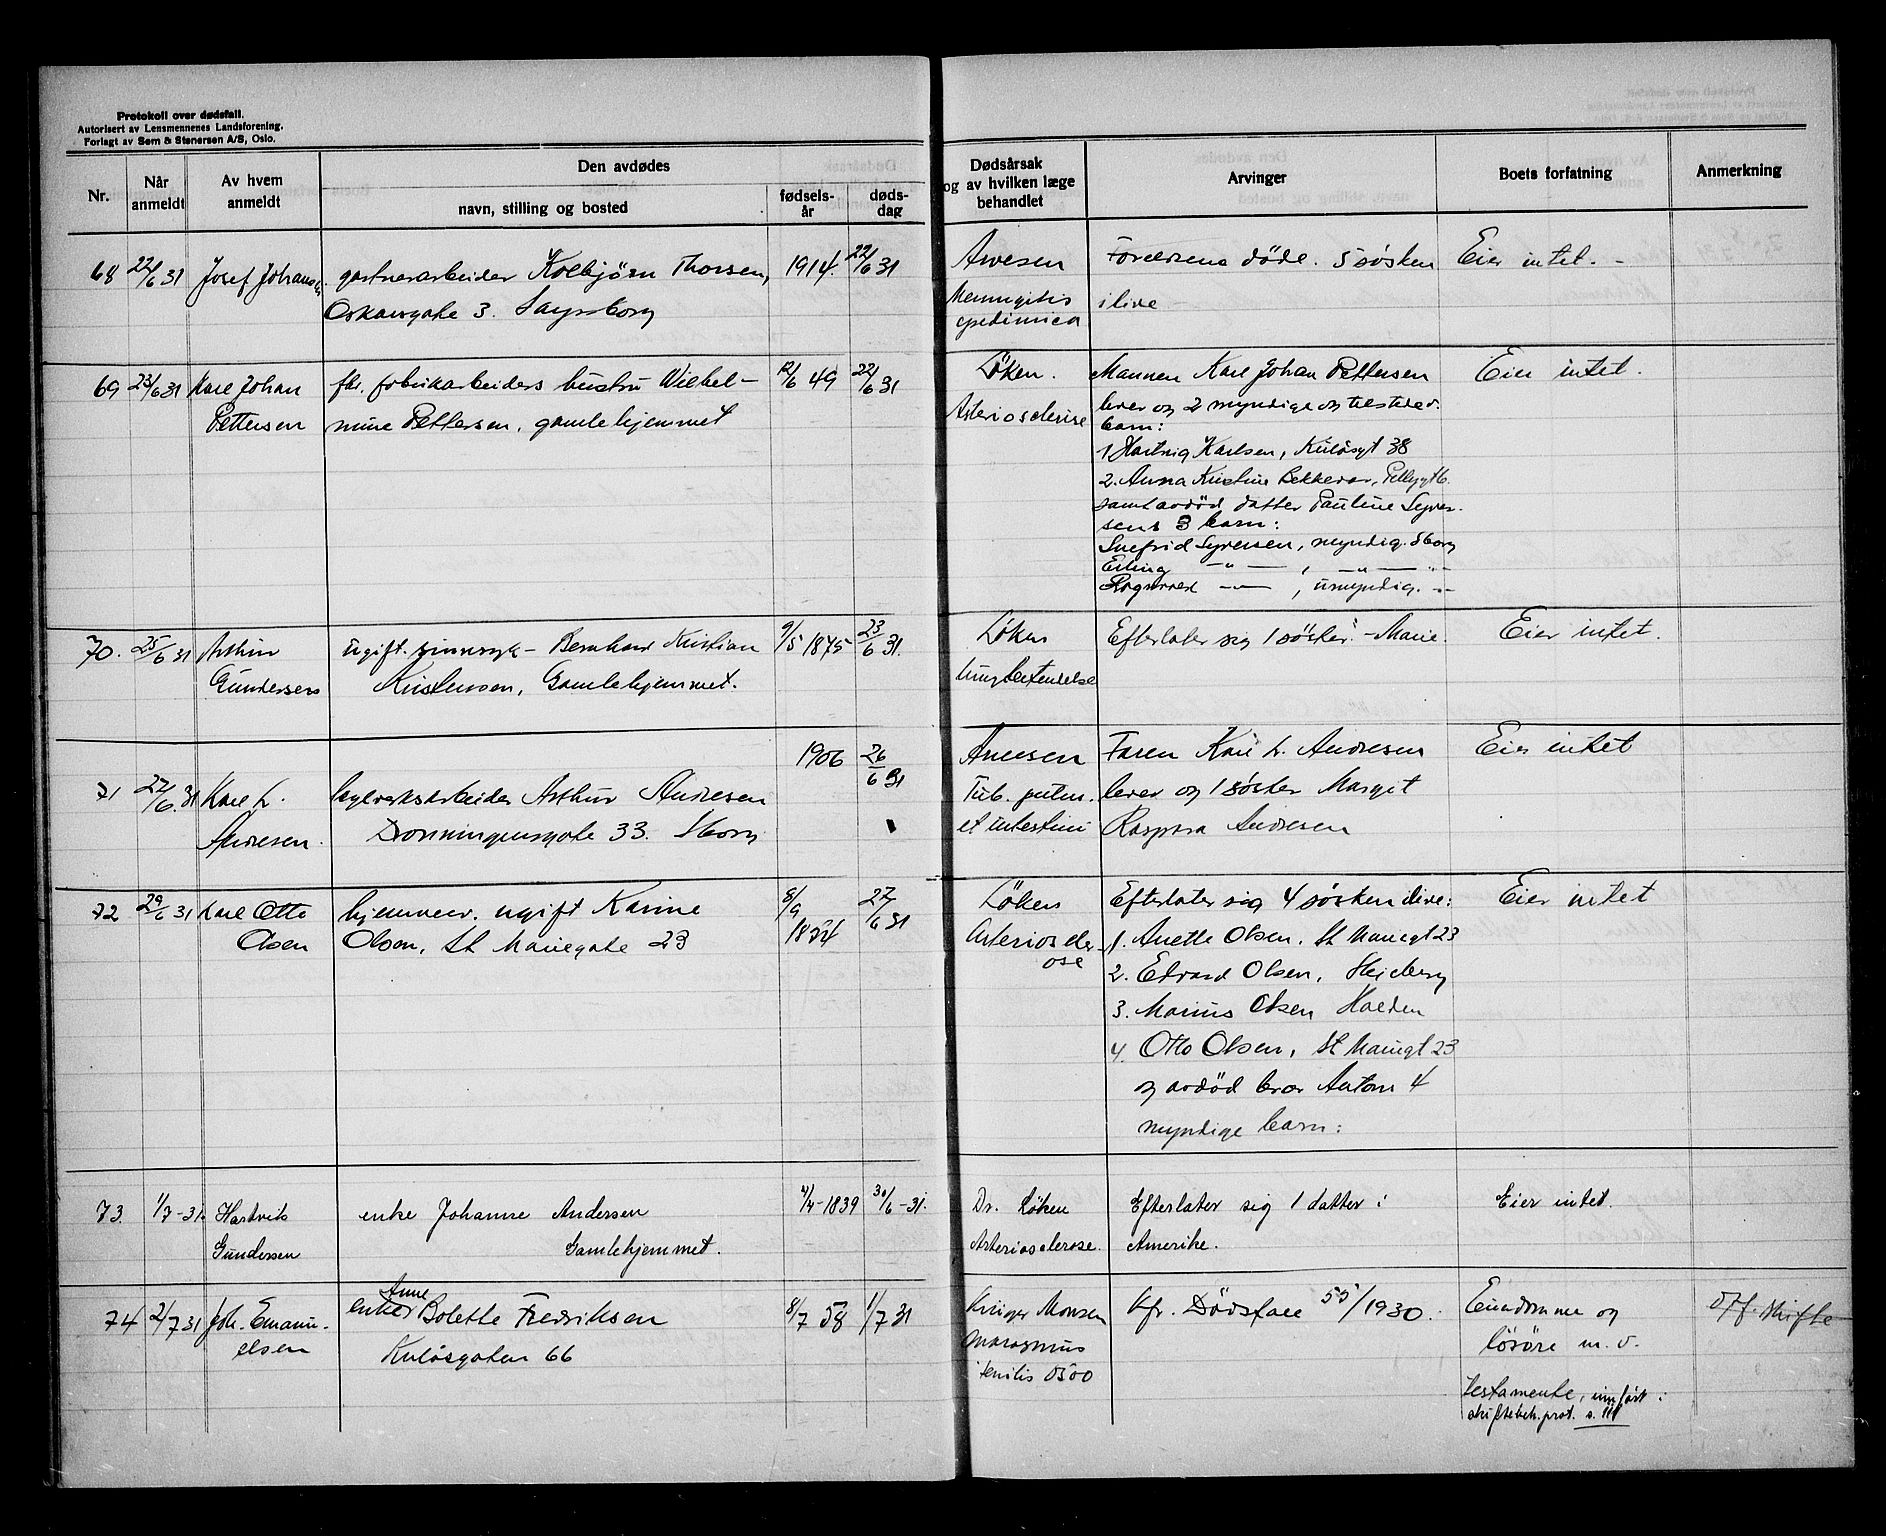 Protokoll over dødsfall.
Autorisert av Lensmennenes Landsforening.
Forlagt av Sem & Stenersen A/S, Oslo.
Nr.
Når anmeldt
Av hvem anmeldt
Den avdødes
navn, stilling og bosted
fødsels-
år
døds-
dag
Dødsårsak
og av hvilken læge
behandlet
Arvinger
Boets forfatning
Anmerkning
68 22/6 31 Josef Johansen gartnerarbeider Kolbjørn Thorsen, 1914. 22/6 31
Oskarsgate 3. Sarpsborg
Arnesen Foreldrene døde. 5 søsken Eier intet. -
Meningitis i live -
epedimica
69 23/6 31 Karl Johan fhv. fabrikarbeiders hustru Wilhel- 12/6 49 22/6 31
Pettersen mine Pettersen, gamlehjemmet
Løken. Mannen Karl Johan Pettersen Eier intet.
Arteriosclerose lever og 2 myndige og tilstedev.
barn:
1 Hartvig Karlsen, Kuløsgt 38
2. Anna Kristine Bekkevar,
samt avdød datter Pauline Syver-
sens 3 barn:
Snefrid Syversen, myndig. Sborg
Erling -"- , -"- -"-
Ragnvald -"- , umyndig. -"-
70. 25/6 31 Arthur ugift. sinnsyk - Bernhard Kristian 9/5 1875 23/6 31.
Gundersen Kristensen, Gamlehjemmet.
Løken Efterlater sig 1 søster. - Marie. Eier intet.
Lungebetendelse
1906 26/6 31
71 27/6 31 Karl L. kylverksarbeider Arthur Andresen
Andresen. Dronningensgate 33. Sborg
Arnesen Faren Karl L. Andresen Eier intet
Tub. pulm. lever og 1 søster Margit
et intestini Raspara Andresen
72 29/6 31 Karl Otto hjemmev. ugift Karine 8/9 27/6 31
Olsen Olsen, St Mariegate 23 1854
Løken Efterlater sig 4 søsken ilive: Eier intet
Arterioscler- 1. Anette Olsen. St Mariegt 23
ose 2. Edvard Olsen, Skjeberg
3. Marius Olsen Halden
4. Otto Olsen, St Mariegt 23
og avdød bror Antons 4
myndige barn:
73. 1/7-31. Hartvik enke Johanne Andersen 4/4-1839 30/6-31.
Gundersen Gamlehjemmet.
Dr. Løken Efterlater sig 1 datter i Eier intet.
Arteriosclerose. Amerike.
74 2/7 31 Joh. Emanu- enke Anne Bolette Fredriksen 8/7 58 1/7 31
elsen Kuløsgaten 66
Krüger Monsen Kfr. Dødsfall 55/1930. Eiendomme og Off. skifte
Marasmus løsøre m. v.
senilis
testamente, innført i
skiftebeh.prot. s. 111